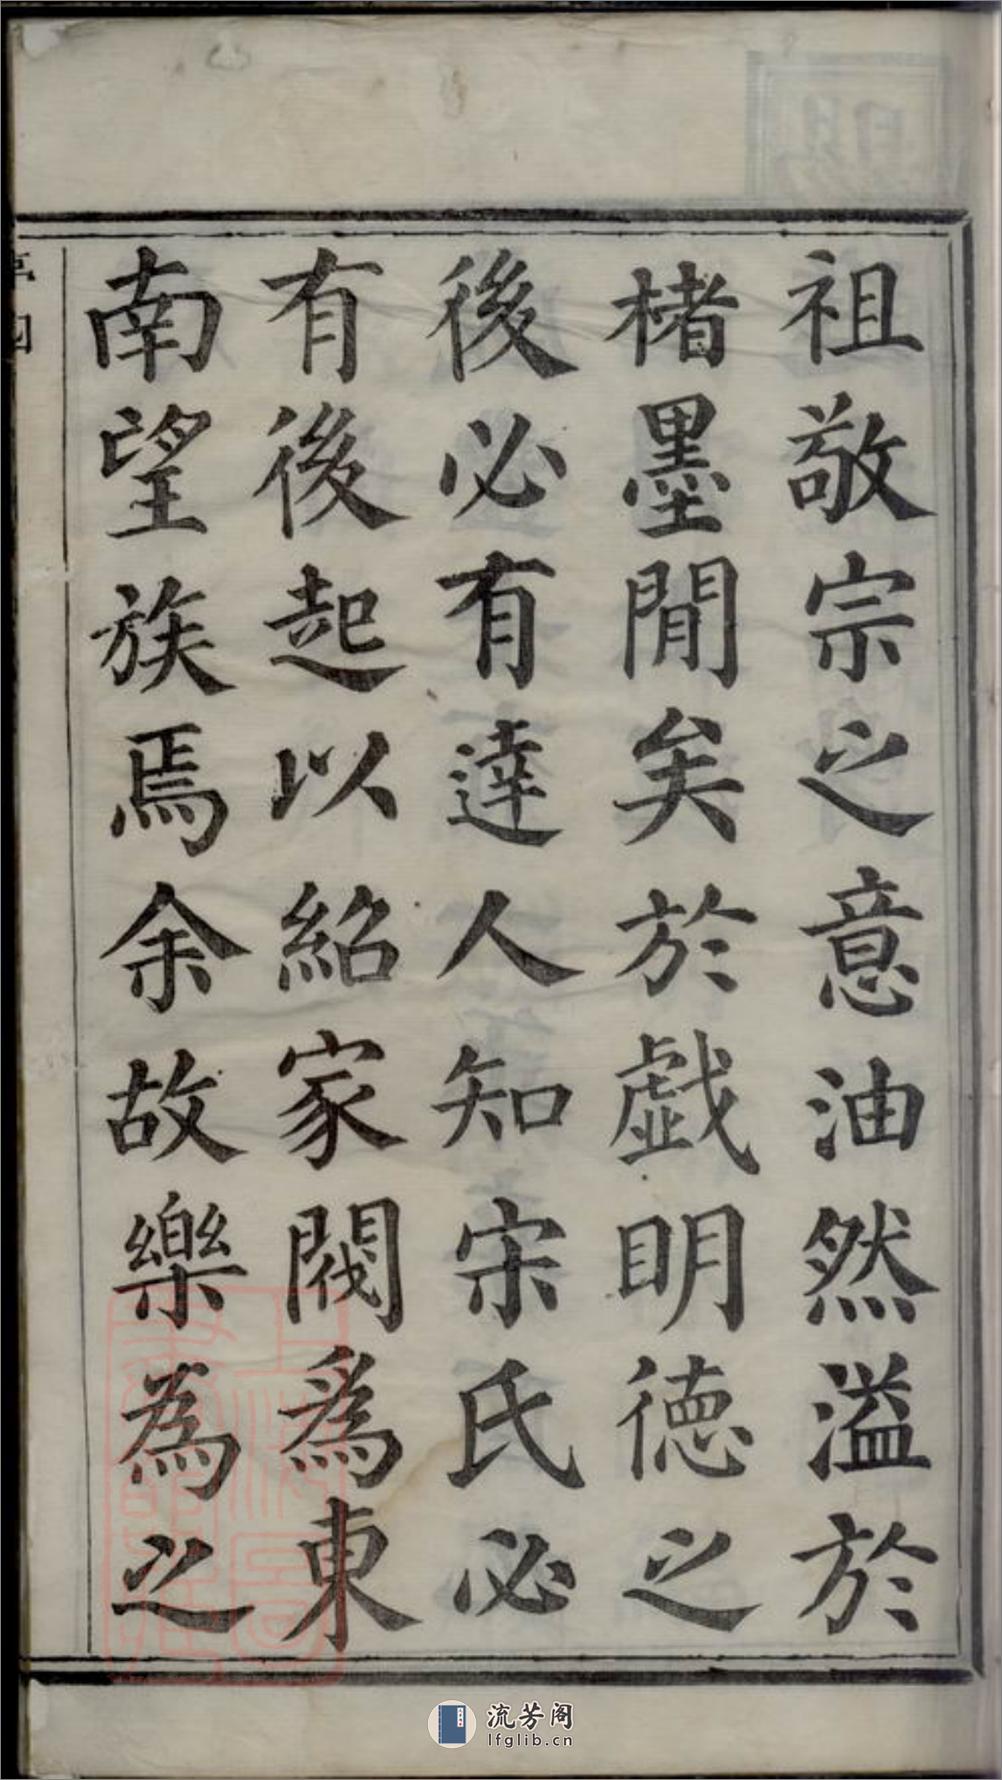 祖敬宗之意油然溢於
楮墨間矣於戲明德之
後必有達人知宋氏必
有後起以紹家閥爲東
南望族焉余故樂為之
流芳阁
lfglib.cn